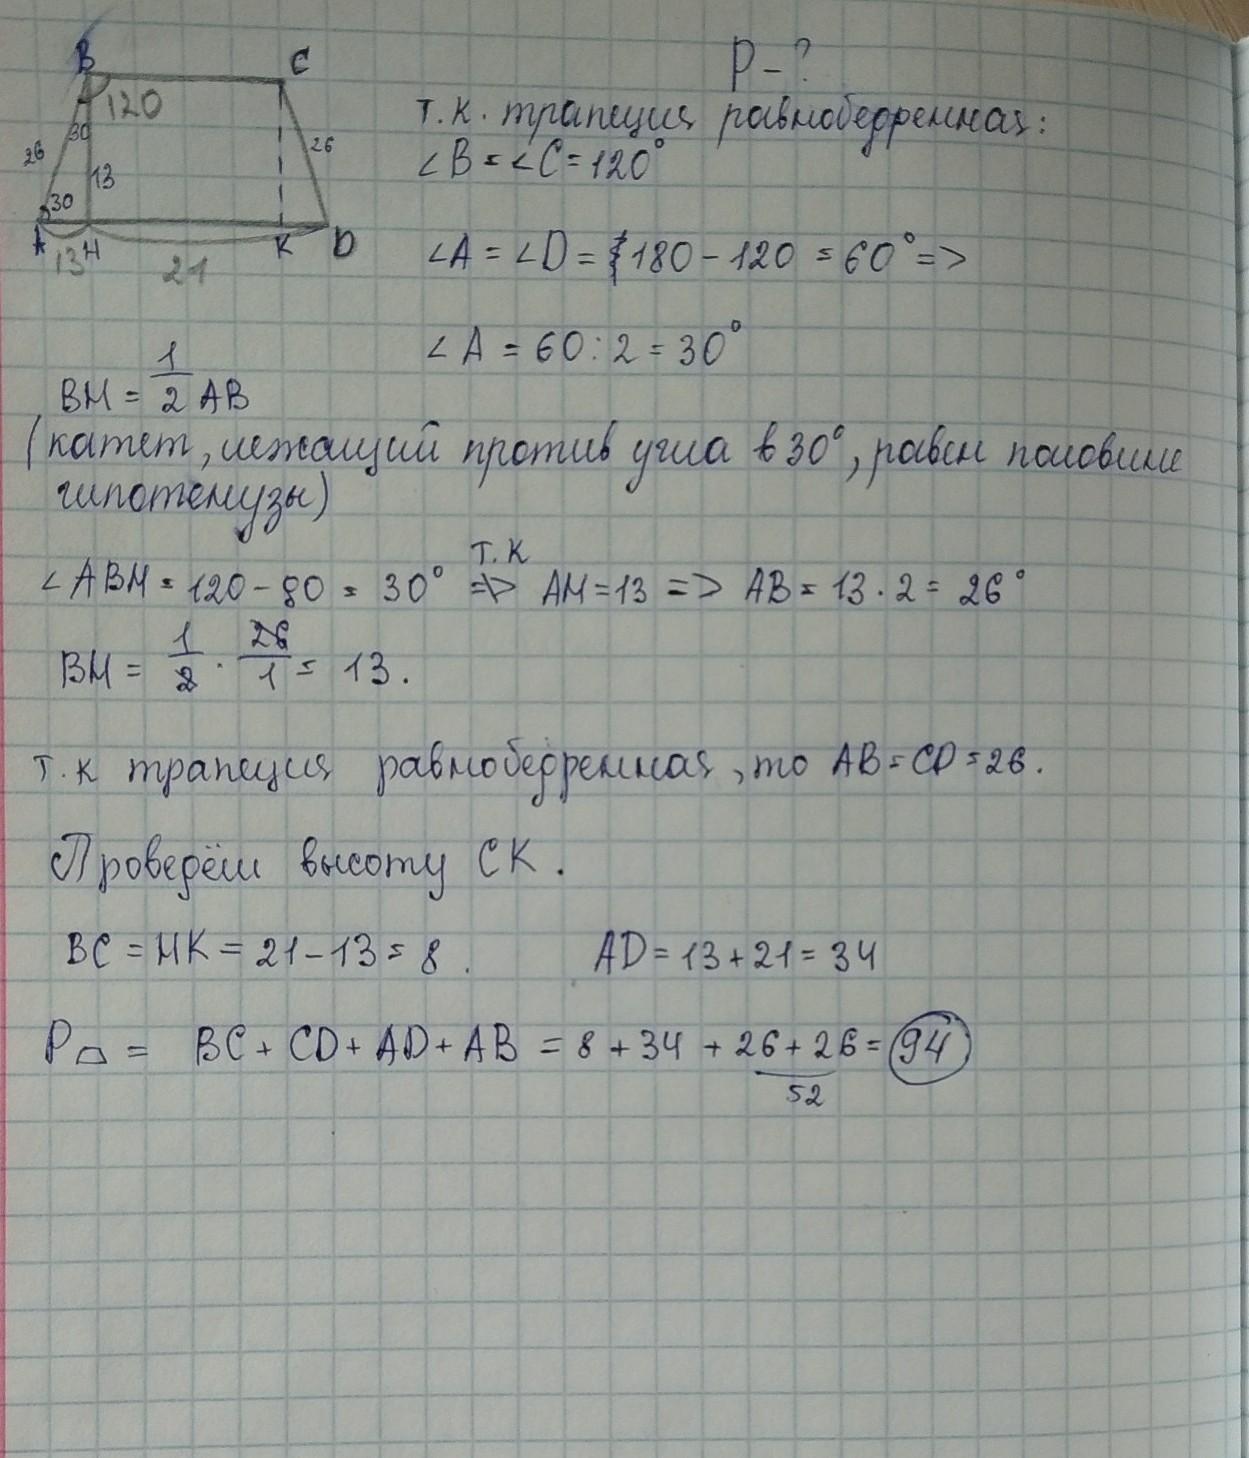 B
C
P-?
120
30
26
26
13
30
A
H
K
D
13
21
т.к. трапеция равнобедренная:
∠B = ∠C = 120°
∠A = ∠D = 180 - 120 = 60° =>
∠A = 60:2 = 30°
BH = 1/2 AB
(катет, лежащий против угла в 30°, равен половине
гипотенузы)
т.к
∠ABH = 120 - 90 = 30° => AH = 13 => AB = 13 · 2 = 26°
BH = 1/2 · 26/1 = 13.
т.к трапеция равнобедренная, то AB = CD = 26.
Проведём высоту CK.
BC = HK = 21 - 13 = 8. AD = 13 + 21 = 34
P⏢ = BC + CD + AD + AB = 8 + 34 + 26 + 26 = 94
52